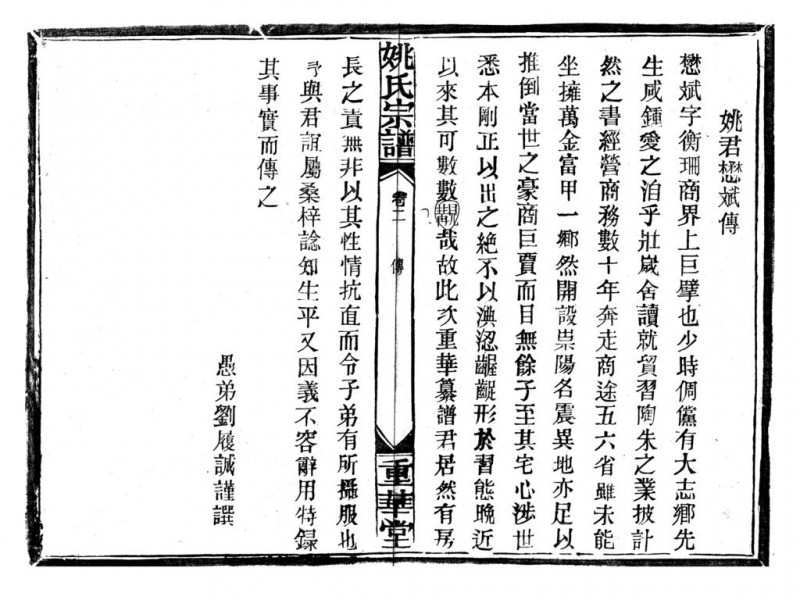 姚君懋斌傳
懋斌字衡珊商界上巨擘也少時倜儻有大志鄉先
生咸鍾愛之洎乎壯崴舍讀就貿習陶朱之業披計
然之書經營商務數十年奔走商途五六省雖未能
坐擁萬金富甲一鄉然開設崇陽名震異地亦足以
推倒當世之豪商巨賈而目無餘子至其宅心涉世
悉本剛正以出之絶不以淟涊齷齪形於習態晚近
以來其可數數覯哉故此次重華纂譜君居然有房
姚氏宗譜
卷二
傳
重華堂
長之責無非以其性情抗直而令子弟有所攝服也
予與君誼屬桑梓諗知生平又因義不容辭用特録
其事實而傳之
愚弟劉履誠謹譔